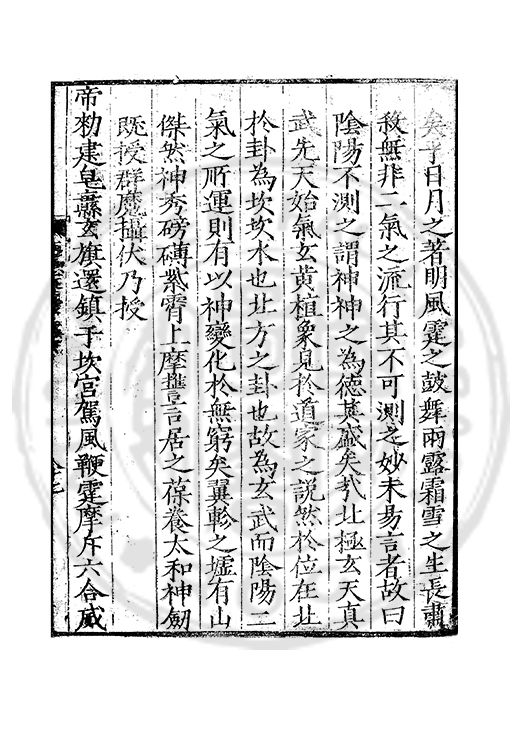 矣于日月之著明風霆之鼓舞雨露霜雪之生長肅
殺無非二氣之流行其不可測之妙未易言者故曰
陰陽不測之謂神神之為德其盛矣哉北極玄天真
武先天始氣玄黃植象見於道家之說然於位在北
於卦為坎坎水也北方之卦也故為玄武而陰陽二
氣之所運則有以神變化於無窮矣翼軫之墟有山
傑然神秀磅礴紫霄上摩誓言居之葆養太和神劒
既授群魔攝伏乃授
帝勑建皂纛玄旗還鎮于坎宮駕風鞭霆摩斥六合威